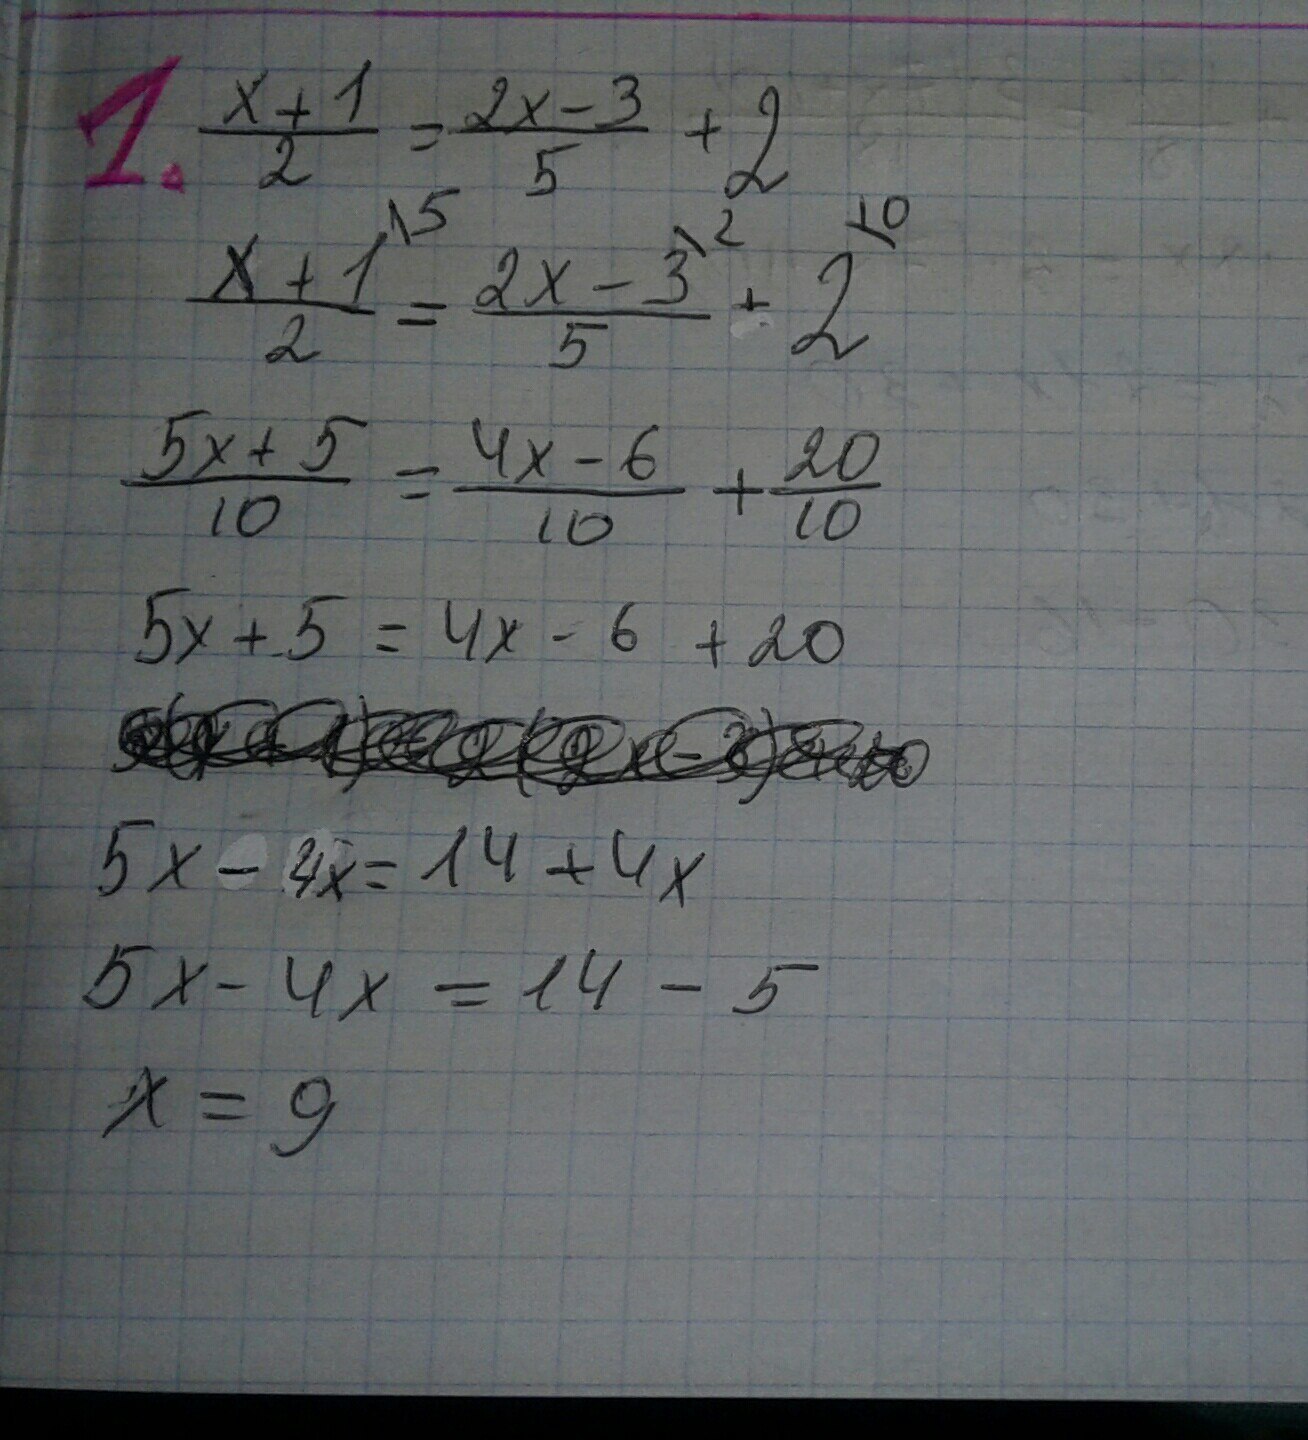 1. x+1/2 = 2x-3/5 + 2
x+1\5/2 = 2x-3\2/5 + 2\10
5x+5/10 = 4x-6/10 + 20/10
5x+5 = 4x-6 +20
5x - 4x = 14 + 4x
5x - 4x = 14 - 5
x = 9